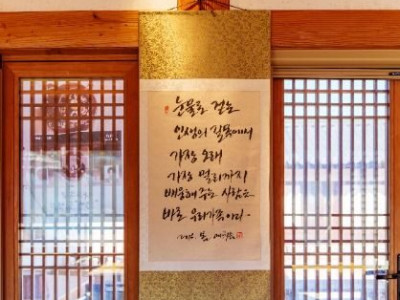 눈물로 걷는
인생의 길목에서
가장 오래
가장 멀리까지
배웅해 주는 사람은
바로 우리 가족이다.